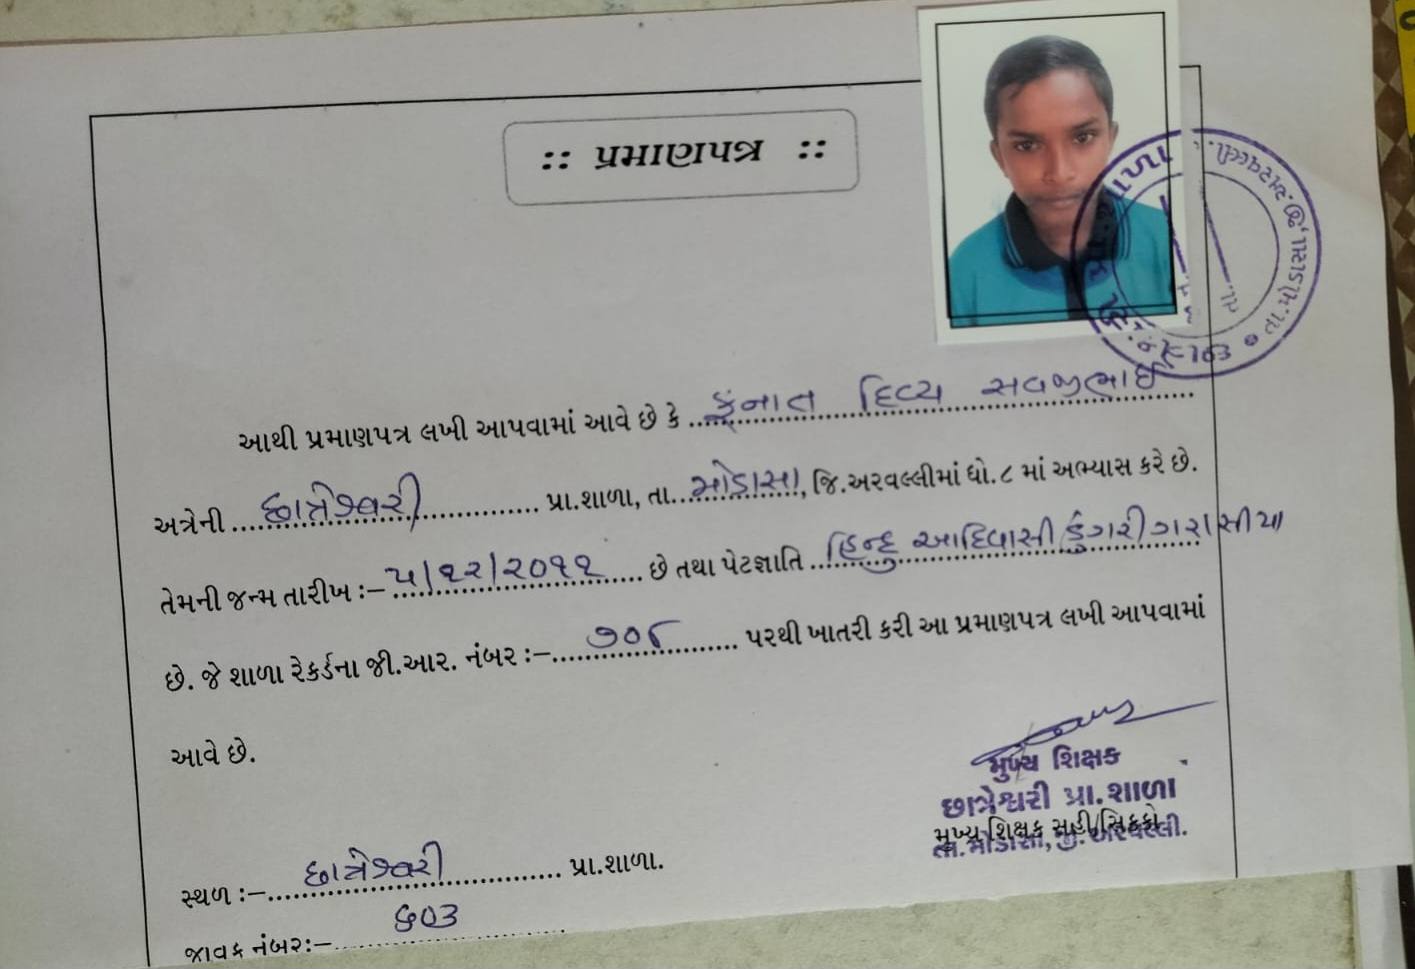 :: પ્રમાણપત્ર ::
આથી પ્રમાણપત્ર લખી આપવામાં આવે છે કે ફંનાત દિવ્ય સવજીભાઈ
અત્રેની છાત્રેશ્વરી પ્રા.શાળા, તા. મોડાસા, જિ.અરવલ્લીમાં ધો.૮ માં અભ્યાસ કરે છે.
તેમની જન્મ તારીખ :- ૫/૧૨/૨૦૧૧ છે તથા પેટજ્ઞાતિ હિન્દુ આદિવાસી ડુંગરી ગરાસીયા
છે. જે શાળા રેકર્ડના જી.આર. નંબર :- ૭૦૮ પરથી ખાતરી કરી આ પ્રમાણપત્ર લખી આપવામાં
આવે છે.
મુખ્ય શિક્ષક
છાત્રેશ્વરી પ્રા.શાળા
મુખ્ય શિક્ષક સહી/સિક્કો
તા.મોડાસા, જી.અરવલ્લી.
સ્થળ :- છાત્રેશ્વરી પ્રા.શાળા.
જાવક નંબર:- ૬૦૩